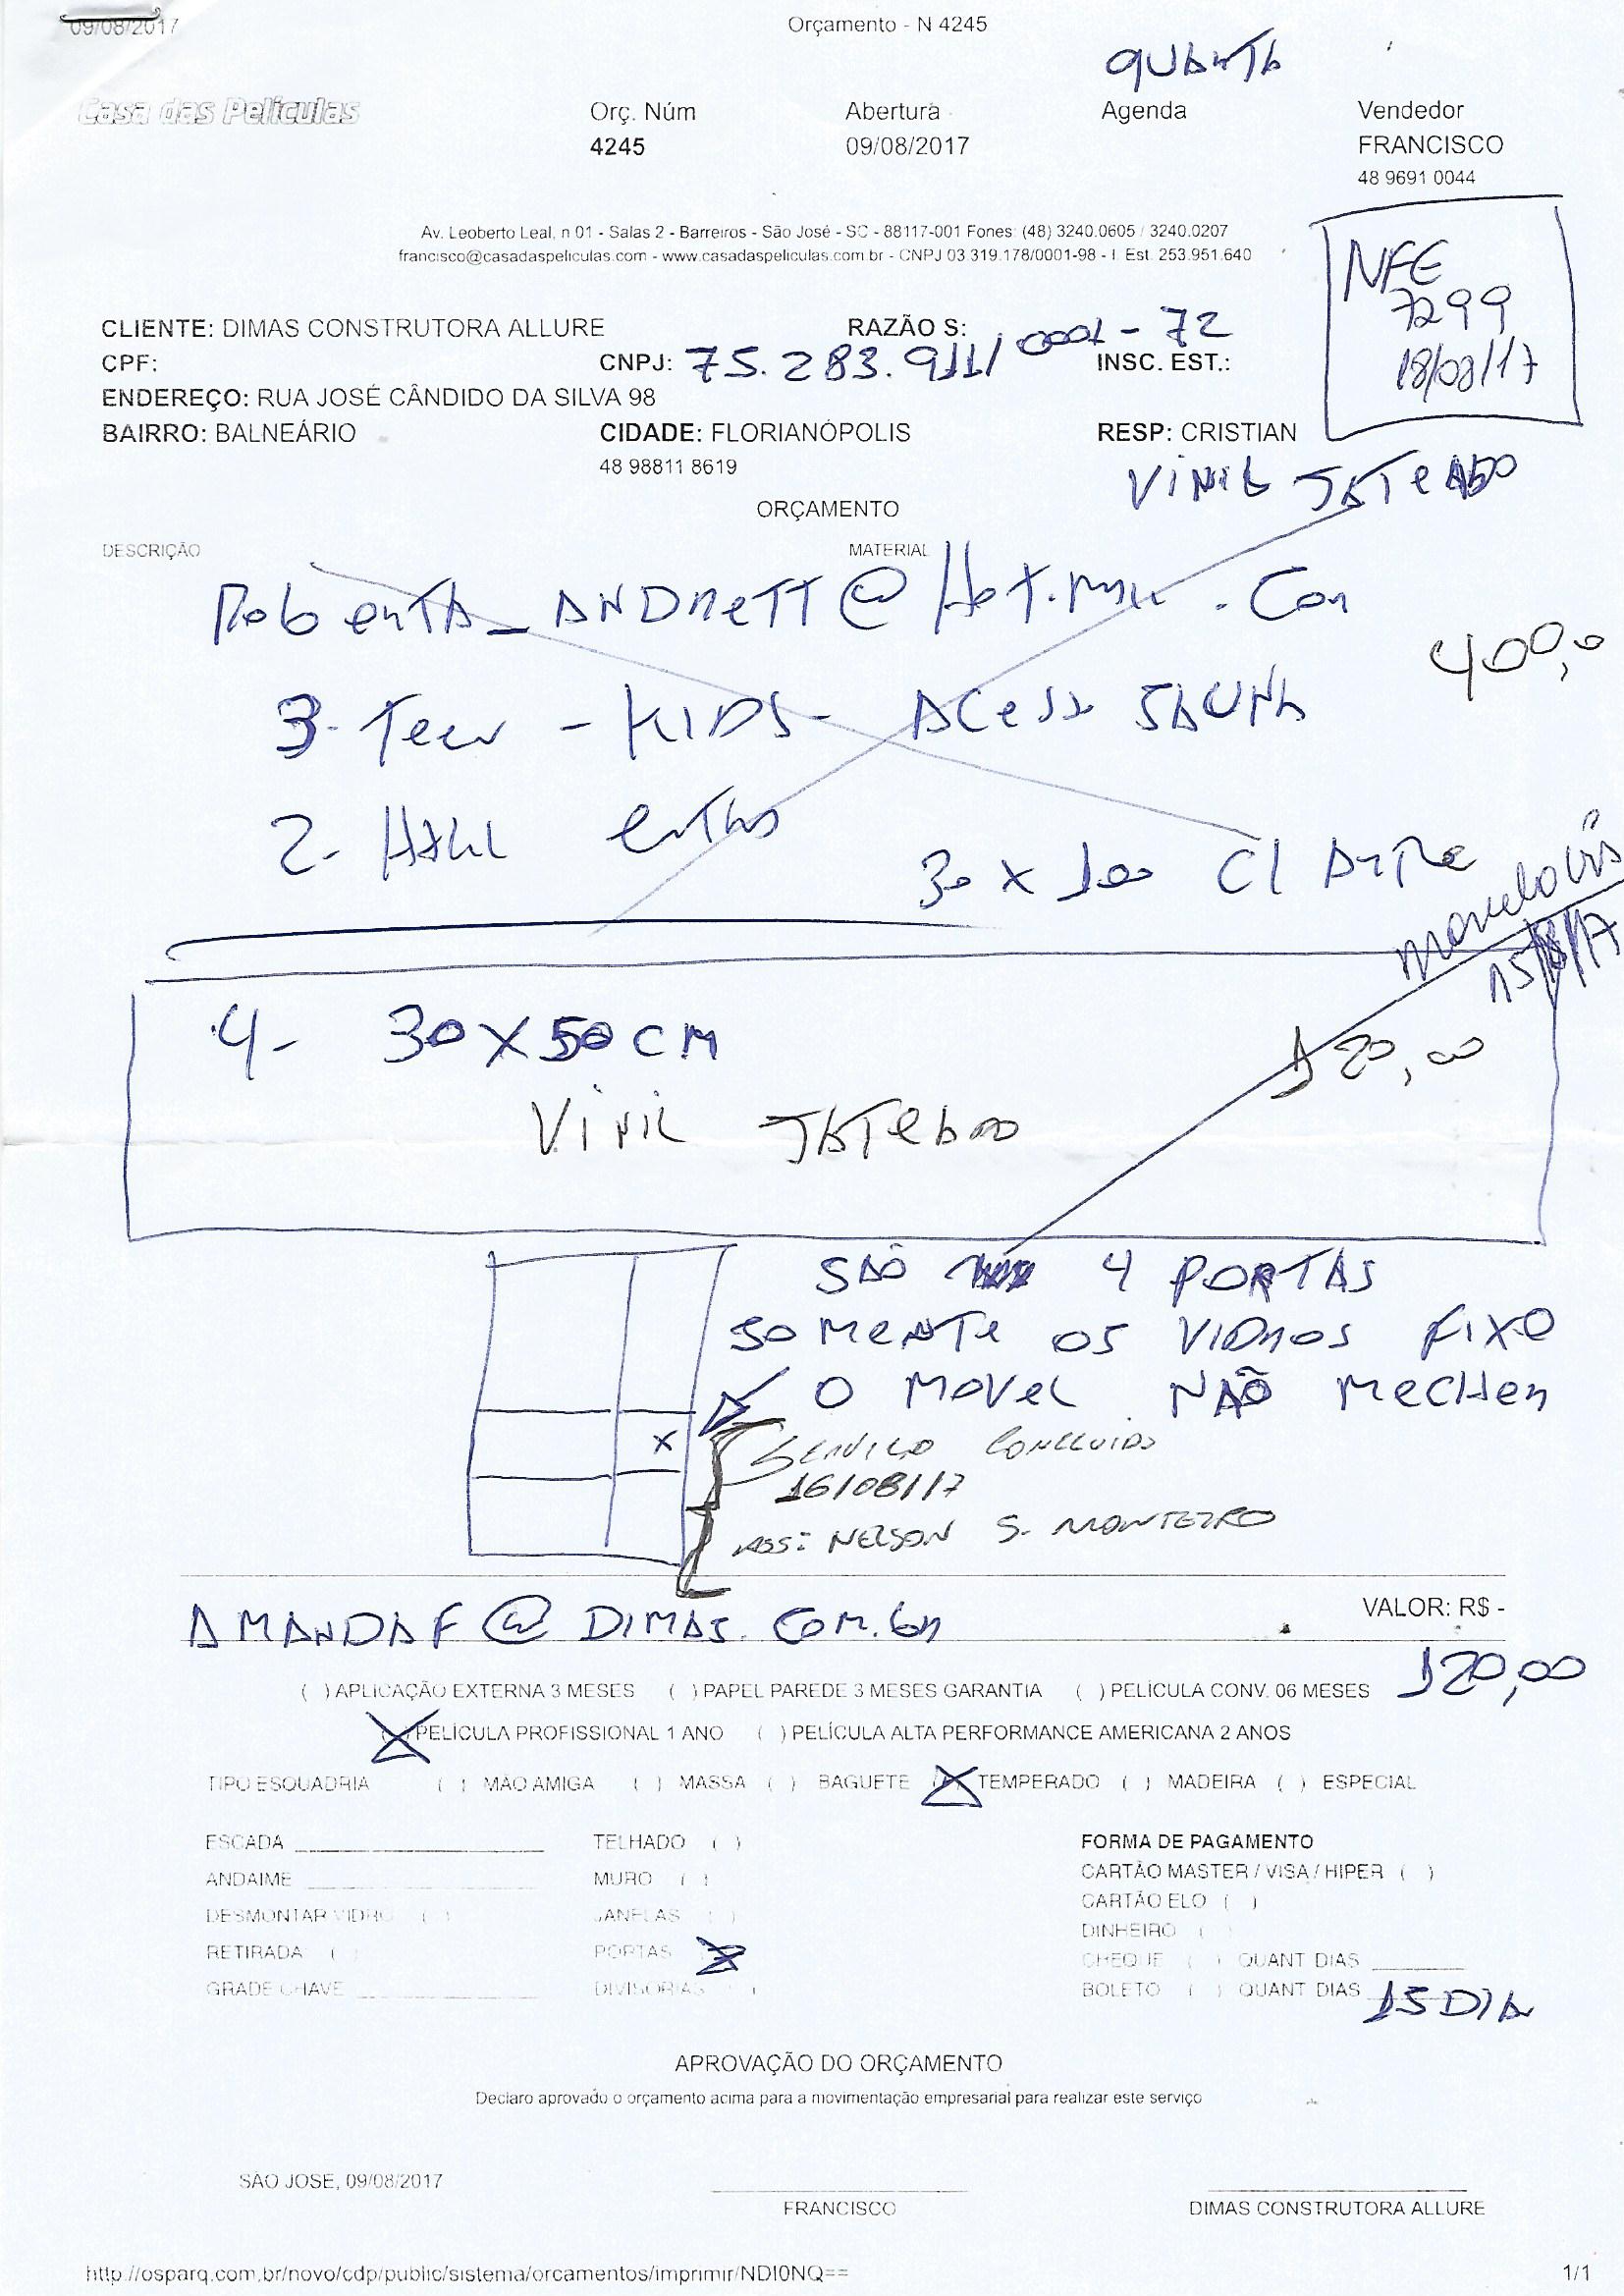 09/08/2017
Orçamento - N 4245
QUARTA
Casa das Películas
Orç. Núm
Abertura
Agenda
Vendedor
4245
09/08/2017
FRANCISCO
48 9691 0044
Av. Leoberto Leal, n 01 - Salas 2 - Barreiros - São José - SC - 88117-001 Fones: (48) 3240.0605 / 3240.0207
francisco@casadaspeliculas.com - www.casadaspeliculas.com.br - CNPJ 03.319.178/0001-98 - I. Est. 253.951.640
NFE
7299
18/08/17
CLIENTE: DIMAS CONSTRUTORA ALLURE
RAZÃO S:
CPF:
CNPJ: 75.283.911/0001-72
INSC. EST.:
ENDEREÇO: RUA JOSÉ CÂNDIDO DA SILVA 98
BAIRRO: BALNEÁRIO
CIDADE: FLORIANÓPOLIS
RESP: CRISTIAN
48 98811 8619
VINIL JATEADO
ORÇAMENTO
DESCRIÇÃO
MATERIAL
400,0
3- Teen - KIDS - ACesso SAUNA
2- HALL
30 x 100 C/
15/8/17
4- 30X50 CM
120,00
VINIL JATEADO
SÃO 4 PORTAS
SOMENTE OS VIDROS FIXO
O MOVEL NÃO MECHER
X
SERVIÇO CONCLUIDO
16/08/17
ASS: NELSON S. MONTEIRO
AMANDAF@DIMAS.COM.br
VALOR: R$ -
120,00
( ) APLICAÇÃO EXTERNA 3 MESES ( ) PAPEL PAREDE 3 MESES GARANTIA ( ) PELÍCULA CONV. 06 MESES
(X) PELÍCULA PROFISSIONAL 1 ANO ( ) PELÍCULA ALTA PERFORMANCE AMERICANA 2 ANOS
TIPO ESQUADRIA ( ) MÃO AMIGA ( ) MASSA ( ) BAGUETE (X) TEMPERADO ( ) MADEIRA ( ) ESPECIAL
ESCADA
TELHADO ( )
FORMA DE PAGAMENTO
ANDAIME
MURO ( )
CARTÃO MASTER / VISA / HIPER ( )
DESMONTAR VIDRO ( )
JANELAS ( )
CARTÃO ELO ( )
DINHEIRO ( )
RETIRADA ( )
PORTAS (X)
CHEQUE ( ) QUANT DIAS
GRADE CHAVE
DIVISORIAS ( )
BOLETO ( ) QUANT DIAS 15 DIA
APROVAÇÃO DO ORÇAMENTO
Declaro aprovado o orçamento acima para a movimentação empresarial para realizar este serviço
SÃO JOSE, 09/08/2017
FRANCISCO
DIMAS CONSTRUTORA ALLURE
http://osparq.com.br/novo/cdp/public/sistema/orcamentos/imprimir/NDI0NQ==
1/1